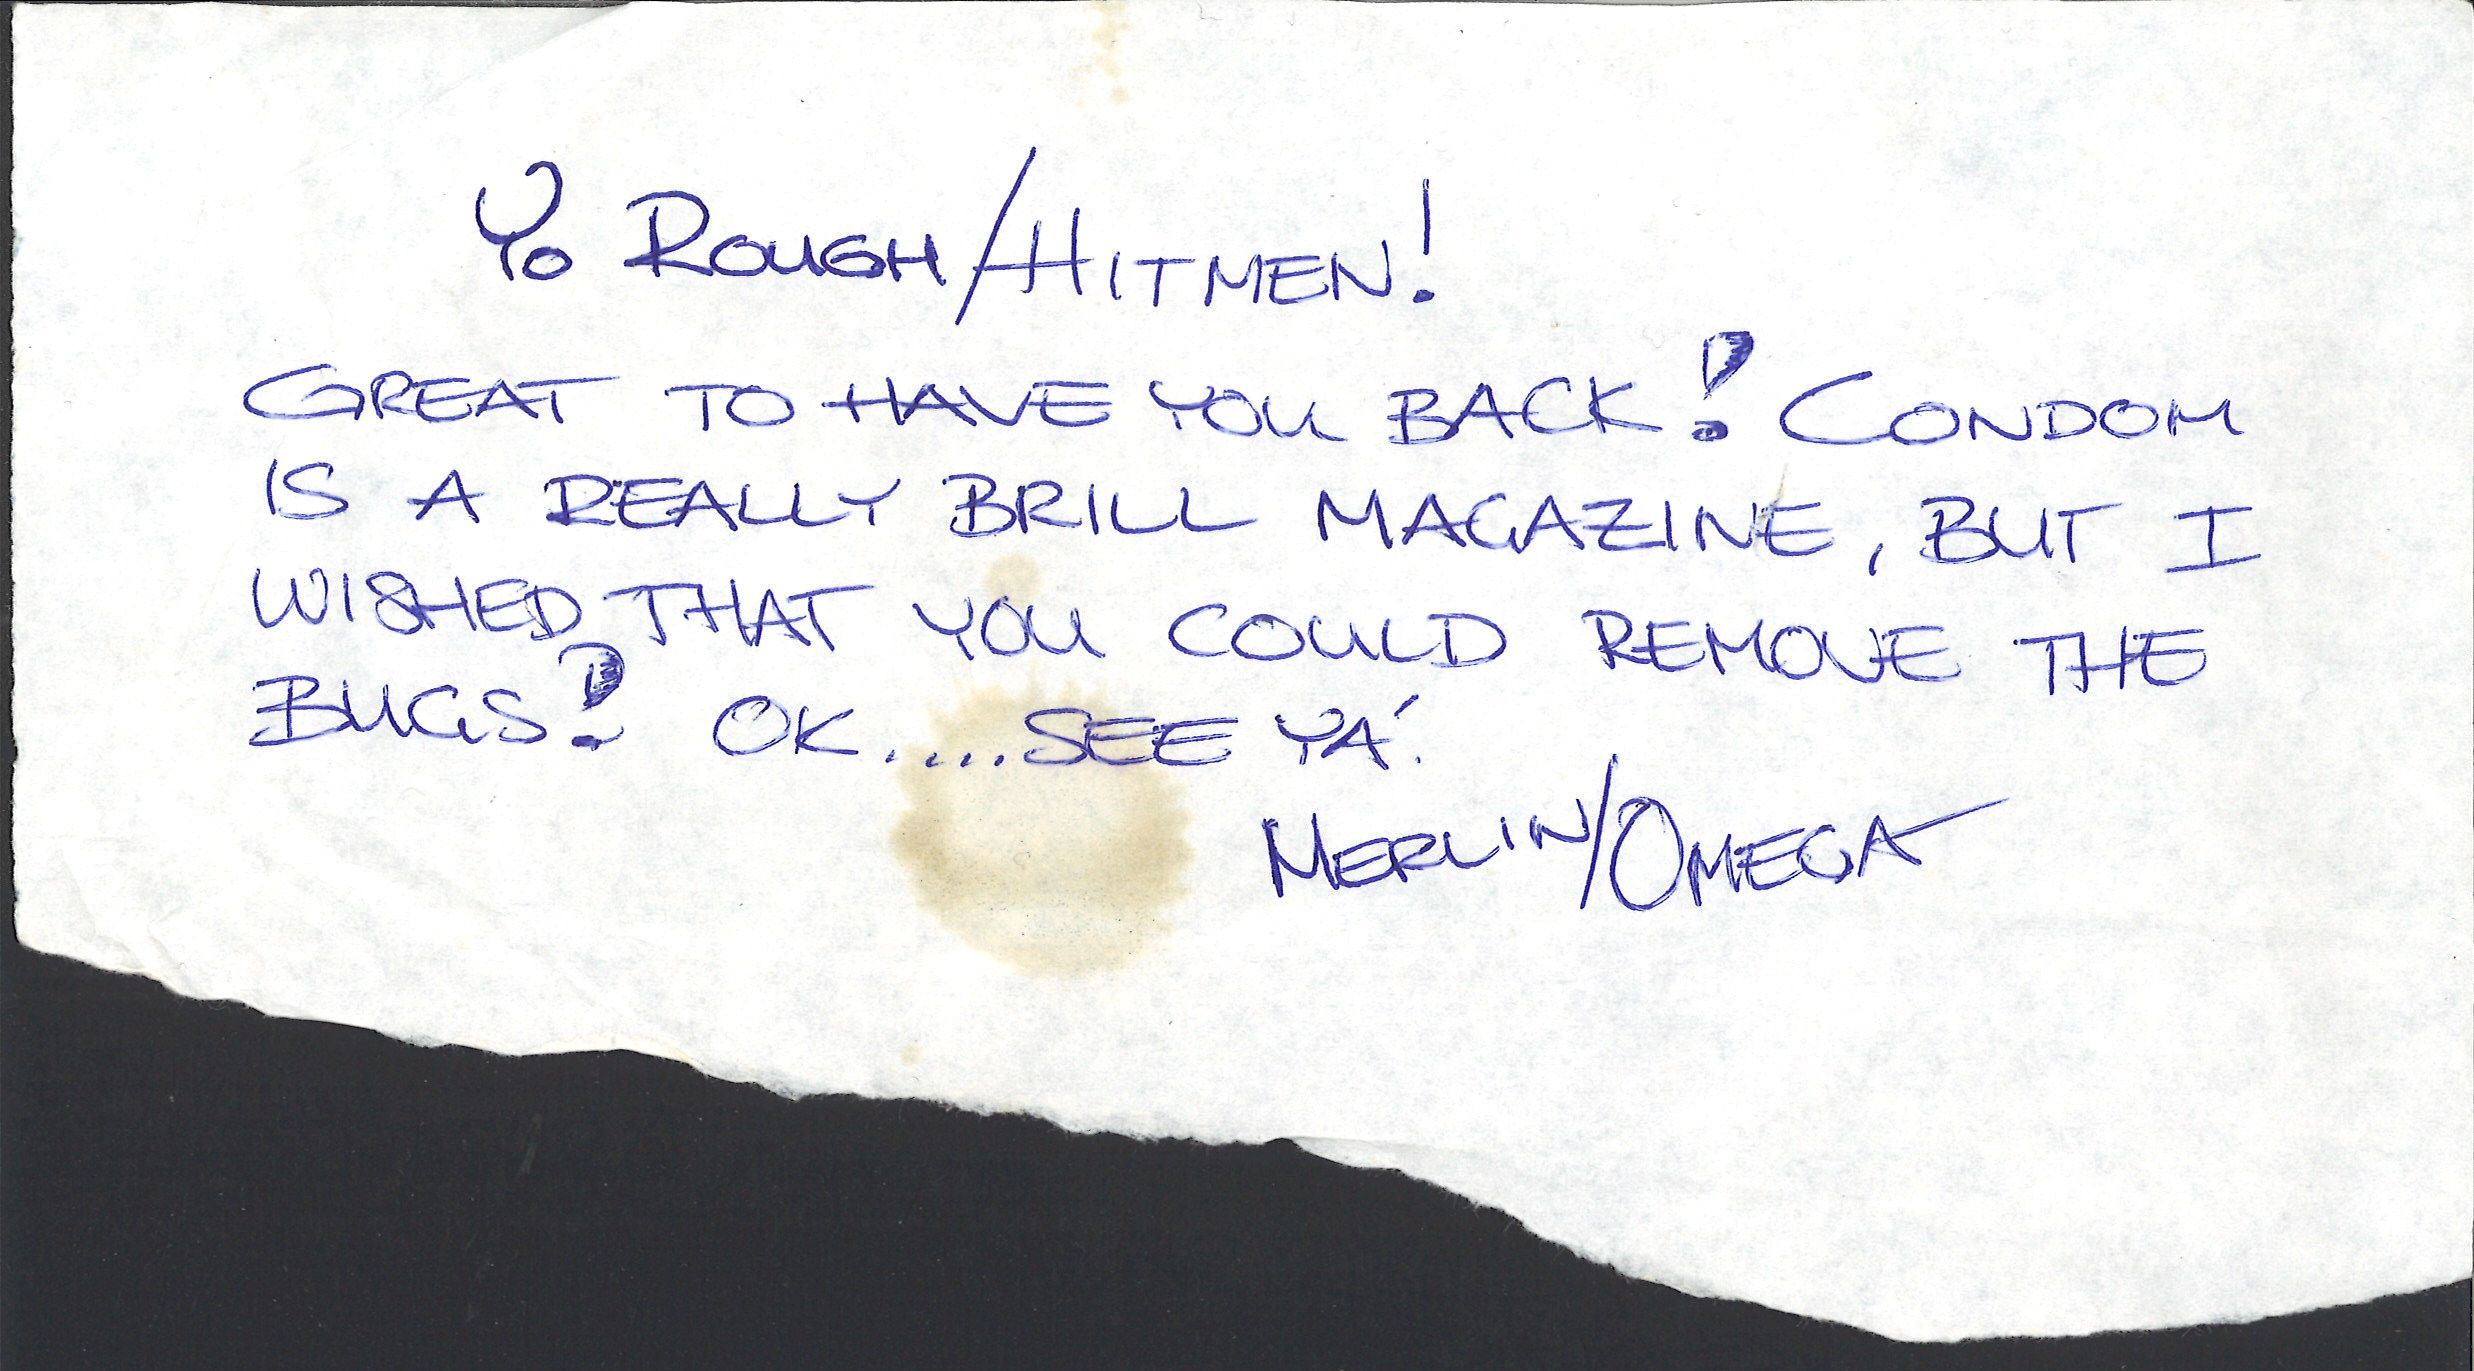 Yo ROUGH/HITMEN!
GREAT TO HAVE YOU BACK! CONDOM
IS A REALLY BRILL MAGAZINE, BUT I
WISHED THAT YOU COULD REMOVE THE
BUGS? OK.....SEE YA!
MERLIN/OMEGA